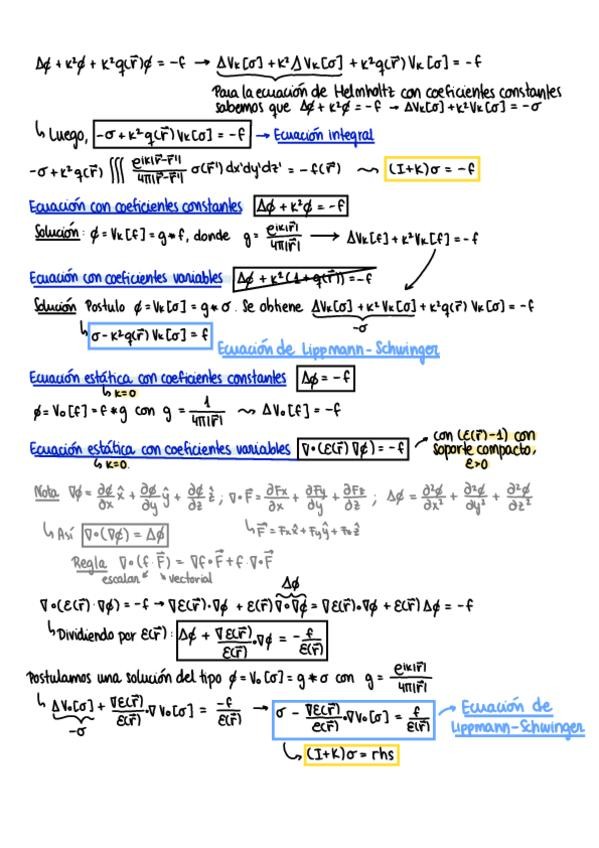 Δφ + κ²φ + κ²q(r⃗)φ = -f → ΔVκ[σ] + κ²ΔVκ[σ] + κ²q(r⃗)Vκ[σ] = -f
Para la ecuación de Helmholtz con coeficientes constantes
sabemos que Δφ + κ²φ = -f → ΔVκ[σ] + κ²Vκ[σ] = -σ
↳ Luego, -σ + κ²q(r⃗)Vκ[σ] = -f → Ecuación integral
-σ + κ²q(r⃗) ∭ e^{iκ|r⃗-r⃗'|} / 4π|r⃗-r⃗'| σ(r⃗')dx'dy'dz' = -f(r⃗) ⤳ (I+K)σ = -f
Ecuación con coeficientes constantes Δφ + κ²φ = -f
Solución: φ = Vκ[f] = g*f, donde g = e^{iκ|r⃗|} / 4π|r⃗| → ΔVκ[f] + κ²Vκ[f] = -f
Ecuación con coeficientes variables Δφ + κ²(1+q(r⃗)) = -f
Solución Postulo φ = Vκ[σ] = g*σ. Se obtiene ΔVκ[σ] + κ²Vκ[σ] + κ²q(r⃗)Vκ[σ] = -f
-σ
↳ σ - κ²q(r⃗)Vκ[σ] = f
Ecuación de Lippmann-Schwinger
Ecuación estática con coeficientes constantes Δφ = -f
↳ κ=0
φ = V₀[f] = f*g con g = 1 / 4π|r⃗| ⤳ ΔV₀[f] = -f
Ecuación estática con coeficientes variables ∇•(ε(r⃗)∇φ) = -f → con (ε(r⃗)-1) con
soporte compacto,
ε>0
↳ κ=0.
Nota ∇φ = ∂φ/∂x x̂ + ∂φ/∂y ŷ + ∂φ/∂z ẑ ; ∇•F⃗ = ∂Fx/∂x + ∂Fy/∂y + ∂Fz/∂z ; Δφ = ∂²φ/∂x² + ∂²φ/∂y² + ∂²φ/∂z²
↳ Así ∇•(∇φ) = Δφ ↳ F⃗ = Fxx̂ + Fyŷ + Fzẑ
Regla ∇•(f·F⃗) = ∇f•F⃗ + f·∇•F⃗
escalar vectorial
Δφ
∇•(ε(r⃗)·∇φ) = -f → ∇ε(r⃗)•∇φ + ε(r⃗)∇•∇φ = ∇ε(r⃗)•∇φ + ε(r⃗)Δφ = -f
↳ Dividiendo por ε(r⃗): Δφ + ∇ε(r⃗)/ε(r⃗) •∇φ = - f/ε(r⃗)
Postulamos una solución del tipo φ = V₀[σ] = g*σ con g = e^{iκ|r⃗|} / 4π|r⃗|
↳ ΔV₀[σ] + ∇ε(r⃗)/ε(r⃗) •∇V₀[σ] = -f/ε(r⃗) → σ - ∇ε(r⃗)/ε(r⃗) •∇V₀[σ] = f/ε(r⃗) → Ecuación de
Lippmann-Schwinger
-σ
↳ (I+K)σ = rhs